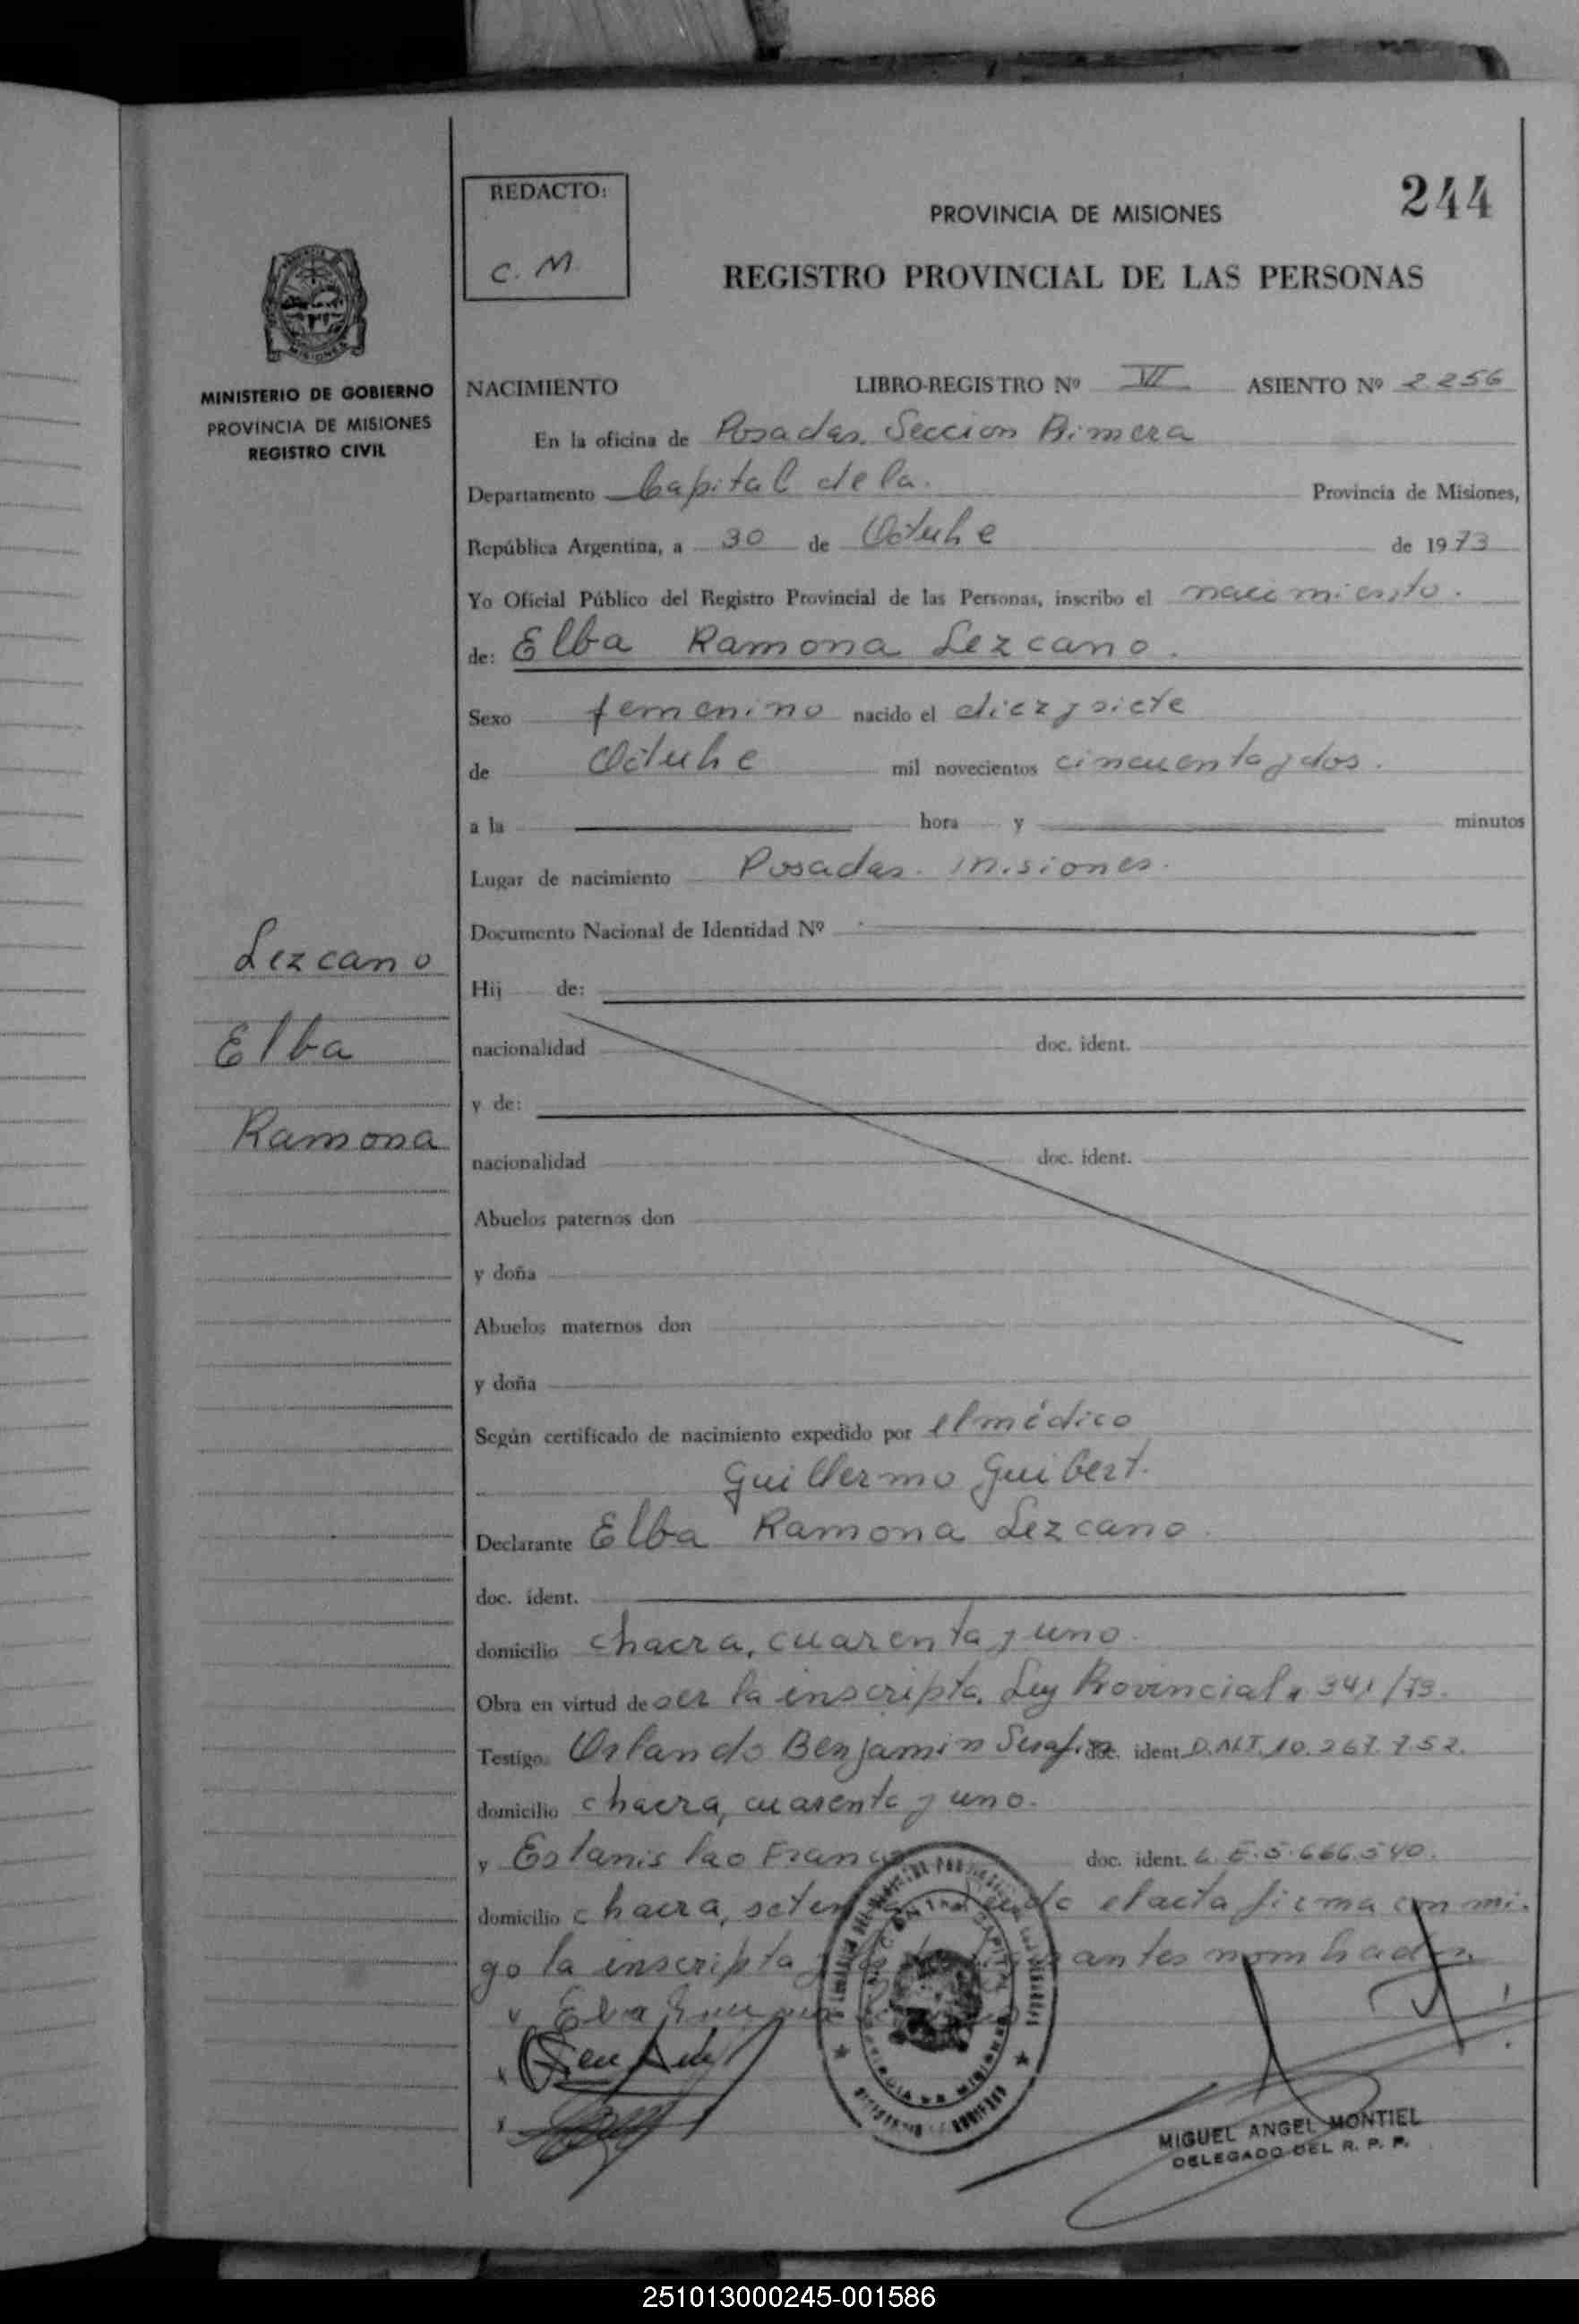 244
REDACTO:
C. M.
PROVINCIA DE MISIONES
REGISTRO PROVINCIAL DE LAS PERSONAS
MINISTERIO DE GOBIERNO
PROVINCIA DE MISIONES
REGISTRO CIVIL
NACIMIENTO LIBRO-REGISTRO Nº VI ASIENTO Nº 2.256
En la oficina de Posadas. Seccion Primera
Departamento Capital de la. Provincia de Misiones,
República Argentina, a 30 de Octubre de 1973
Yo Oficial Público del Registro Provincial de las Personas, inscribo el nacimiento.
de: Elba Ramona Lezcano.
Sexo femenino nacido el diez y siete
de Octubre mil novecientos cincuenta y dos.
a la hora y minutos
Lugar de nacimiento Posadas. Misiones.
Documento Nacional de Identidad Nº
Lezcano
Elba
Ramona
Hij de:
nacionalidad doc. ident.
y de:
nacionalidad doc. ident.
Abuelos paternos don
y doña
Abuelos maternos don
y doña
Según certificado de nacimiento expedido por el médico
Guillermo Guibert.
Declarante Elba Ramona Lezcano.
doc. ident.
domicilio chacra, cuarenta y uno.
Obra en virtud de ser la inscripta. Ley Provincial 341/73.
Testigo Orlando Benjamin doc. ident. D.N.I. 10.267.752.
domicilio chacra, cuarenta y uno.
y Estanislao Franco doc. ident. L.E. 5.666.540.
domicilio chacra, el acta firma conmi-
go la inscripta antes nombrados.
MIGUEL ANGEL MONTIEL
DELEGADO DEL R. P. P.
251013000245-001586